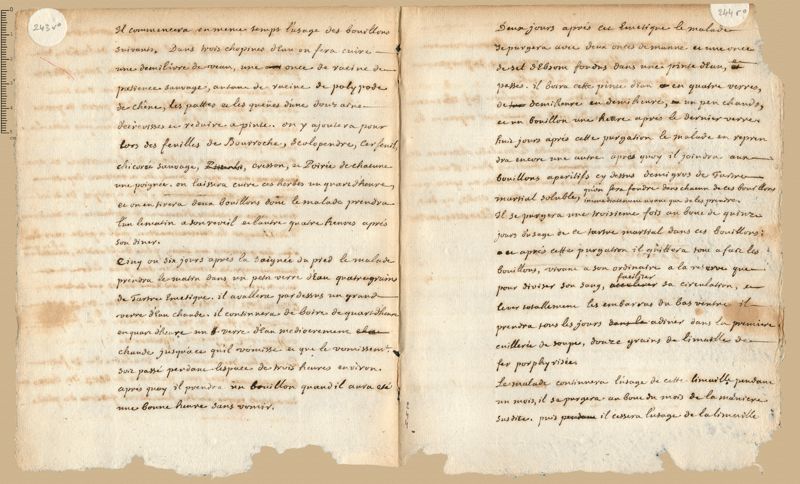 243 v°
Il commencera en meme temps l'usage des bouillons
suivants. Dans trois chopines d'eau on fera cuire
une demi livre de veau, une once de racine de
patience sauvage, autant de racine de polypode
de chêne, les pattes et les queües d'une douzaine
d'ecrevisses et reduire a pinte. on y ajoutera pour
lors des feuilles de Bourroche, scolopendre, cerfeuil,
chicorée sauvage, cresson, et Poirée de chacune
une poignée. on laissera cuire ces herbes un quart d'heure,
et on en tirera deux bouillons dont le malade prendra
l'un le matin a son reveil et l'autre quatre heures après
son diner.
Cinq ou six jours après la saignée du pied le malade
prendra le matin dans un petit verre d'eau quatre grains
de Tartre Emetique, il avallera par dessus un grand
verre d'eau chaude. il continuera de boire de quart d'heure
en quart d'heure un verre d'eau mediocrement
chaude jusqu'a ce qu'il vomisse et que le vomissemt.
soit passé pendant l'espace de trois heures environ.
après quoy il prendra un bouillon quand il aura eté
une bonne heure sans vomir.
244 r°
Deux jours après cet Emetique le malade
se purgera avec deux onces de manne et une once
de sel d'Ebsom fondus dans une pinte d'eau, et
passés. il boira cette pinte d'eau en quatre verres,
de demiheure en demiheure, un peu chauds,
et un bouillon une heure après le dernier verre.
huit jours après cette purgation le malade en repren
dra encore une autre après quoy il joindra aux
bouillons aperitifs cy dessus demi gros de Tartre
martial soluble, qu'on fera fondre dans chacun de ces bouillons
immediatement avant que de les prendre.
Il se purgera une troisieme fois au bout de quinze
jours d'usage de ce tartre martial dans ces bouillons:
après cette purgation il quittera tout a fait les
bouillons, vivant a son ordinaire a la reserve que
pour diviser son sang, faciliter sa circulation, et
lever totallement les embarras du bas ventre il
prendra tous les jours a diner dans la premiere
cuillerée de soupe, douze grains de limaille de
fer porphyrisée.
Le malade continuera l'usage de cette limaille pendant
un mois, il se purgera au bout du mois de la maniere
susdite. puis il cessera l'usage de la limaille